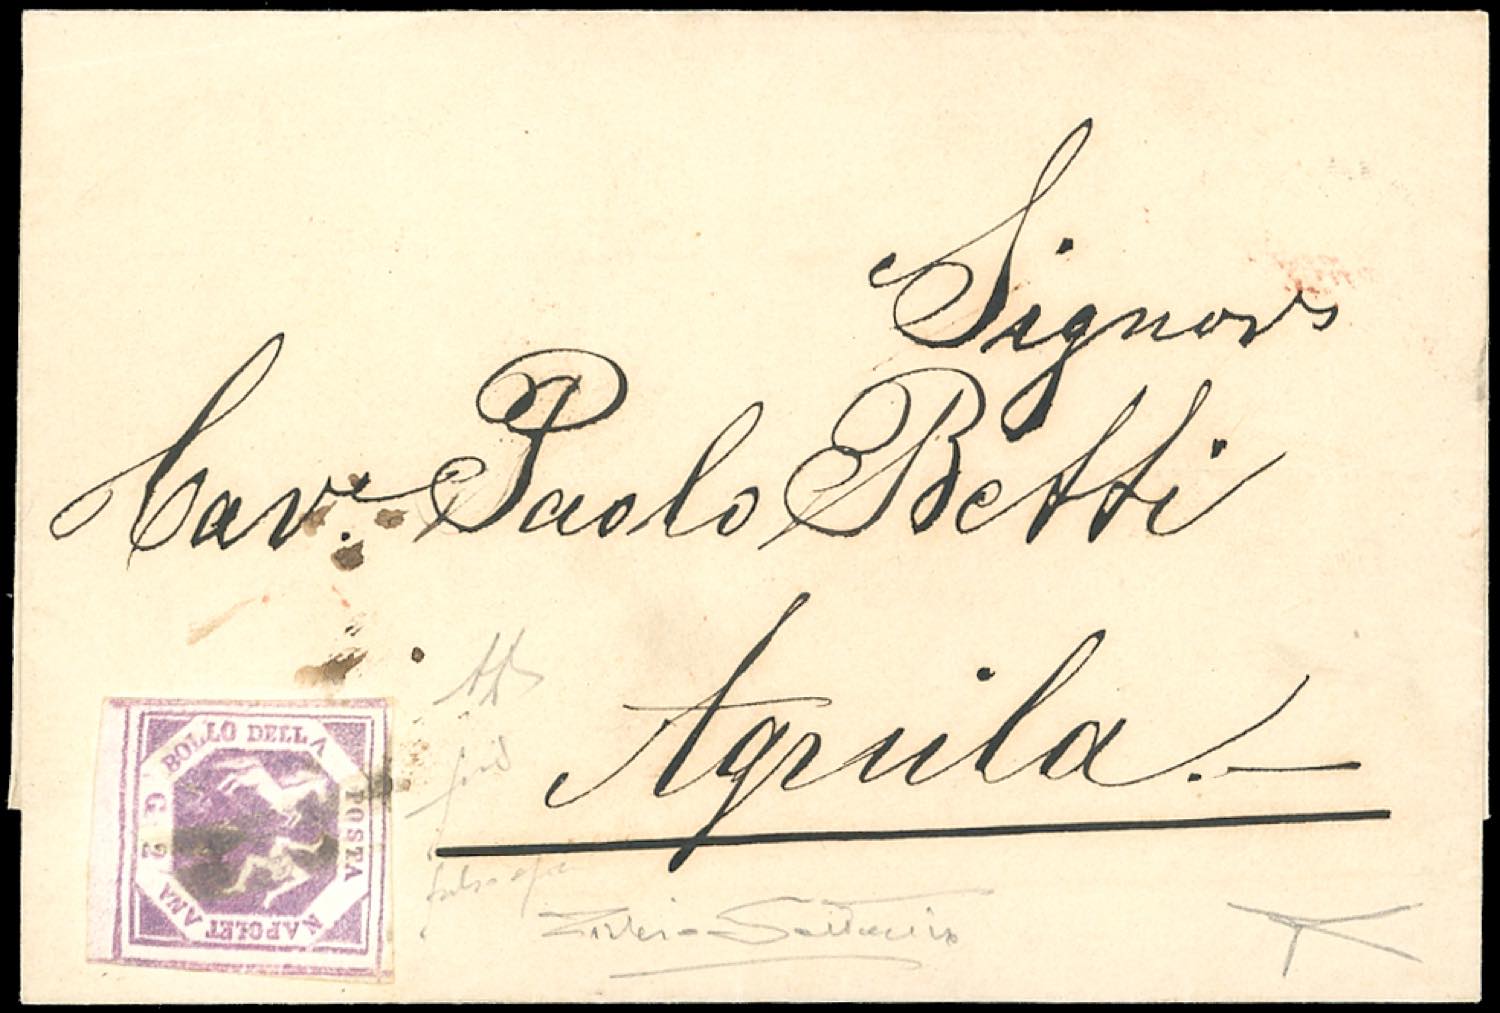 Signore
Cav. Paolo Betti
Aquila. —
BOLLO DELLA
POSTA
NAPOLETANA
G 2